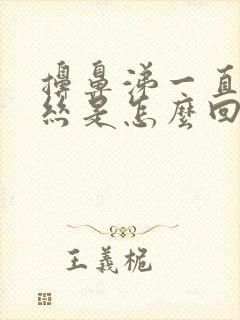 擤鼻涕一直
絲是怎麼回
王義桅